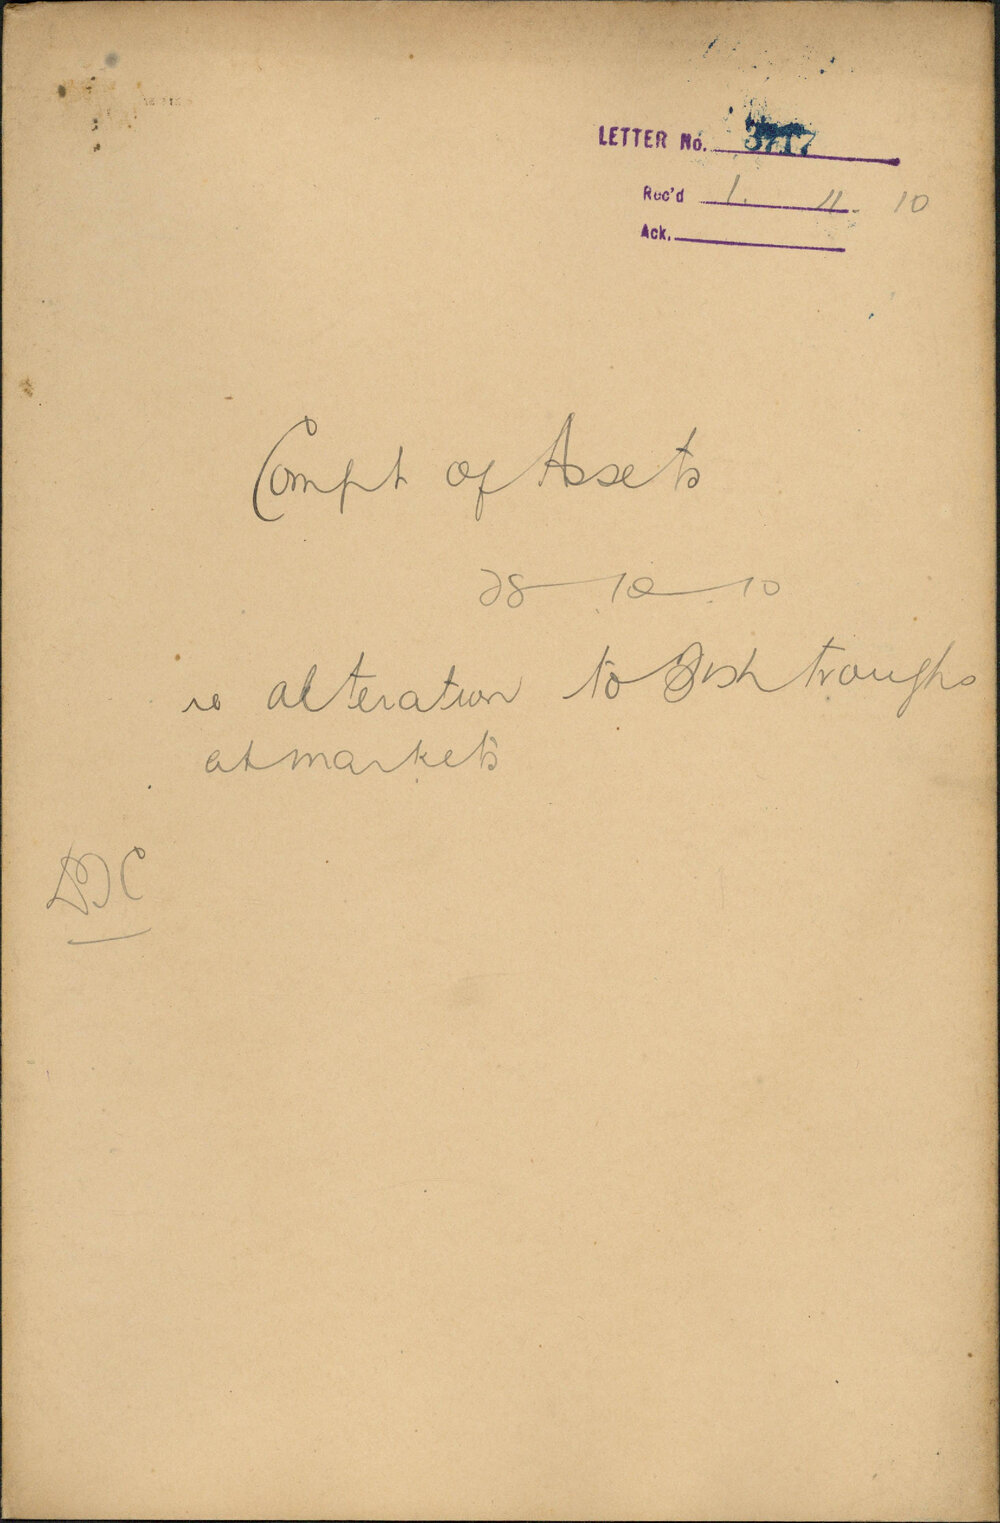 LETTER No. 3717
Rec'd 1. 11. 10
Ack.
Compt of Assets
28-10-10
re alteration to Fish troughs
at markets